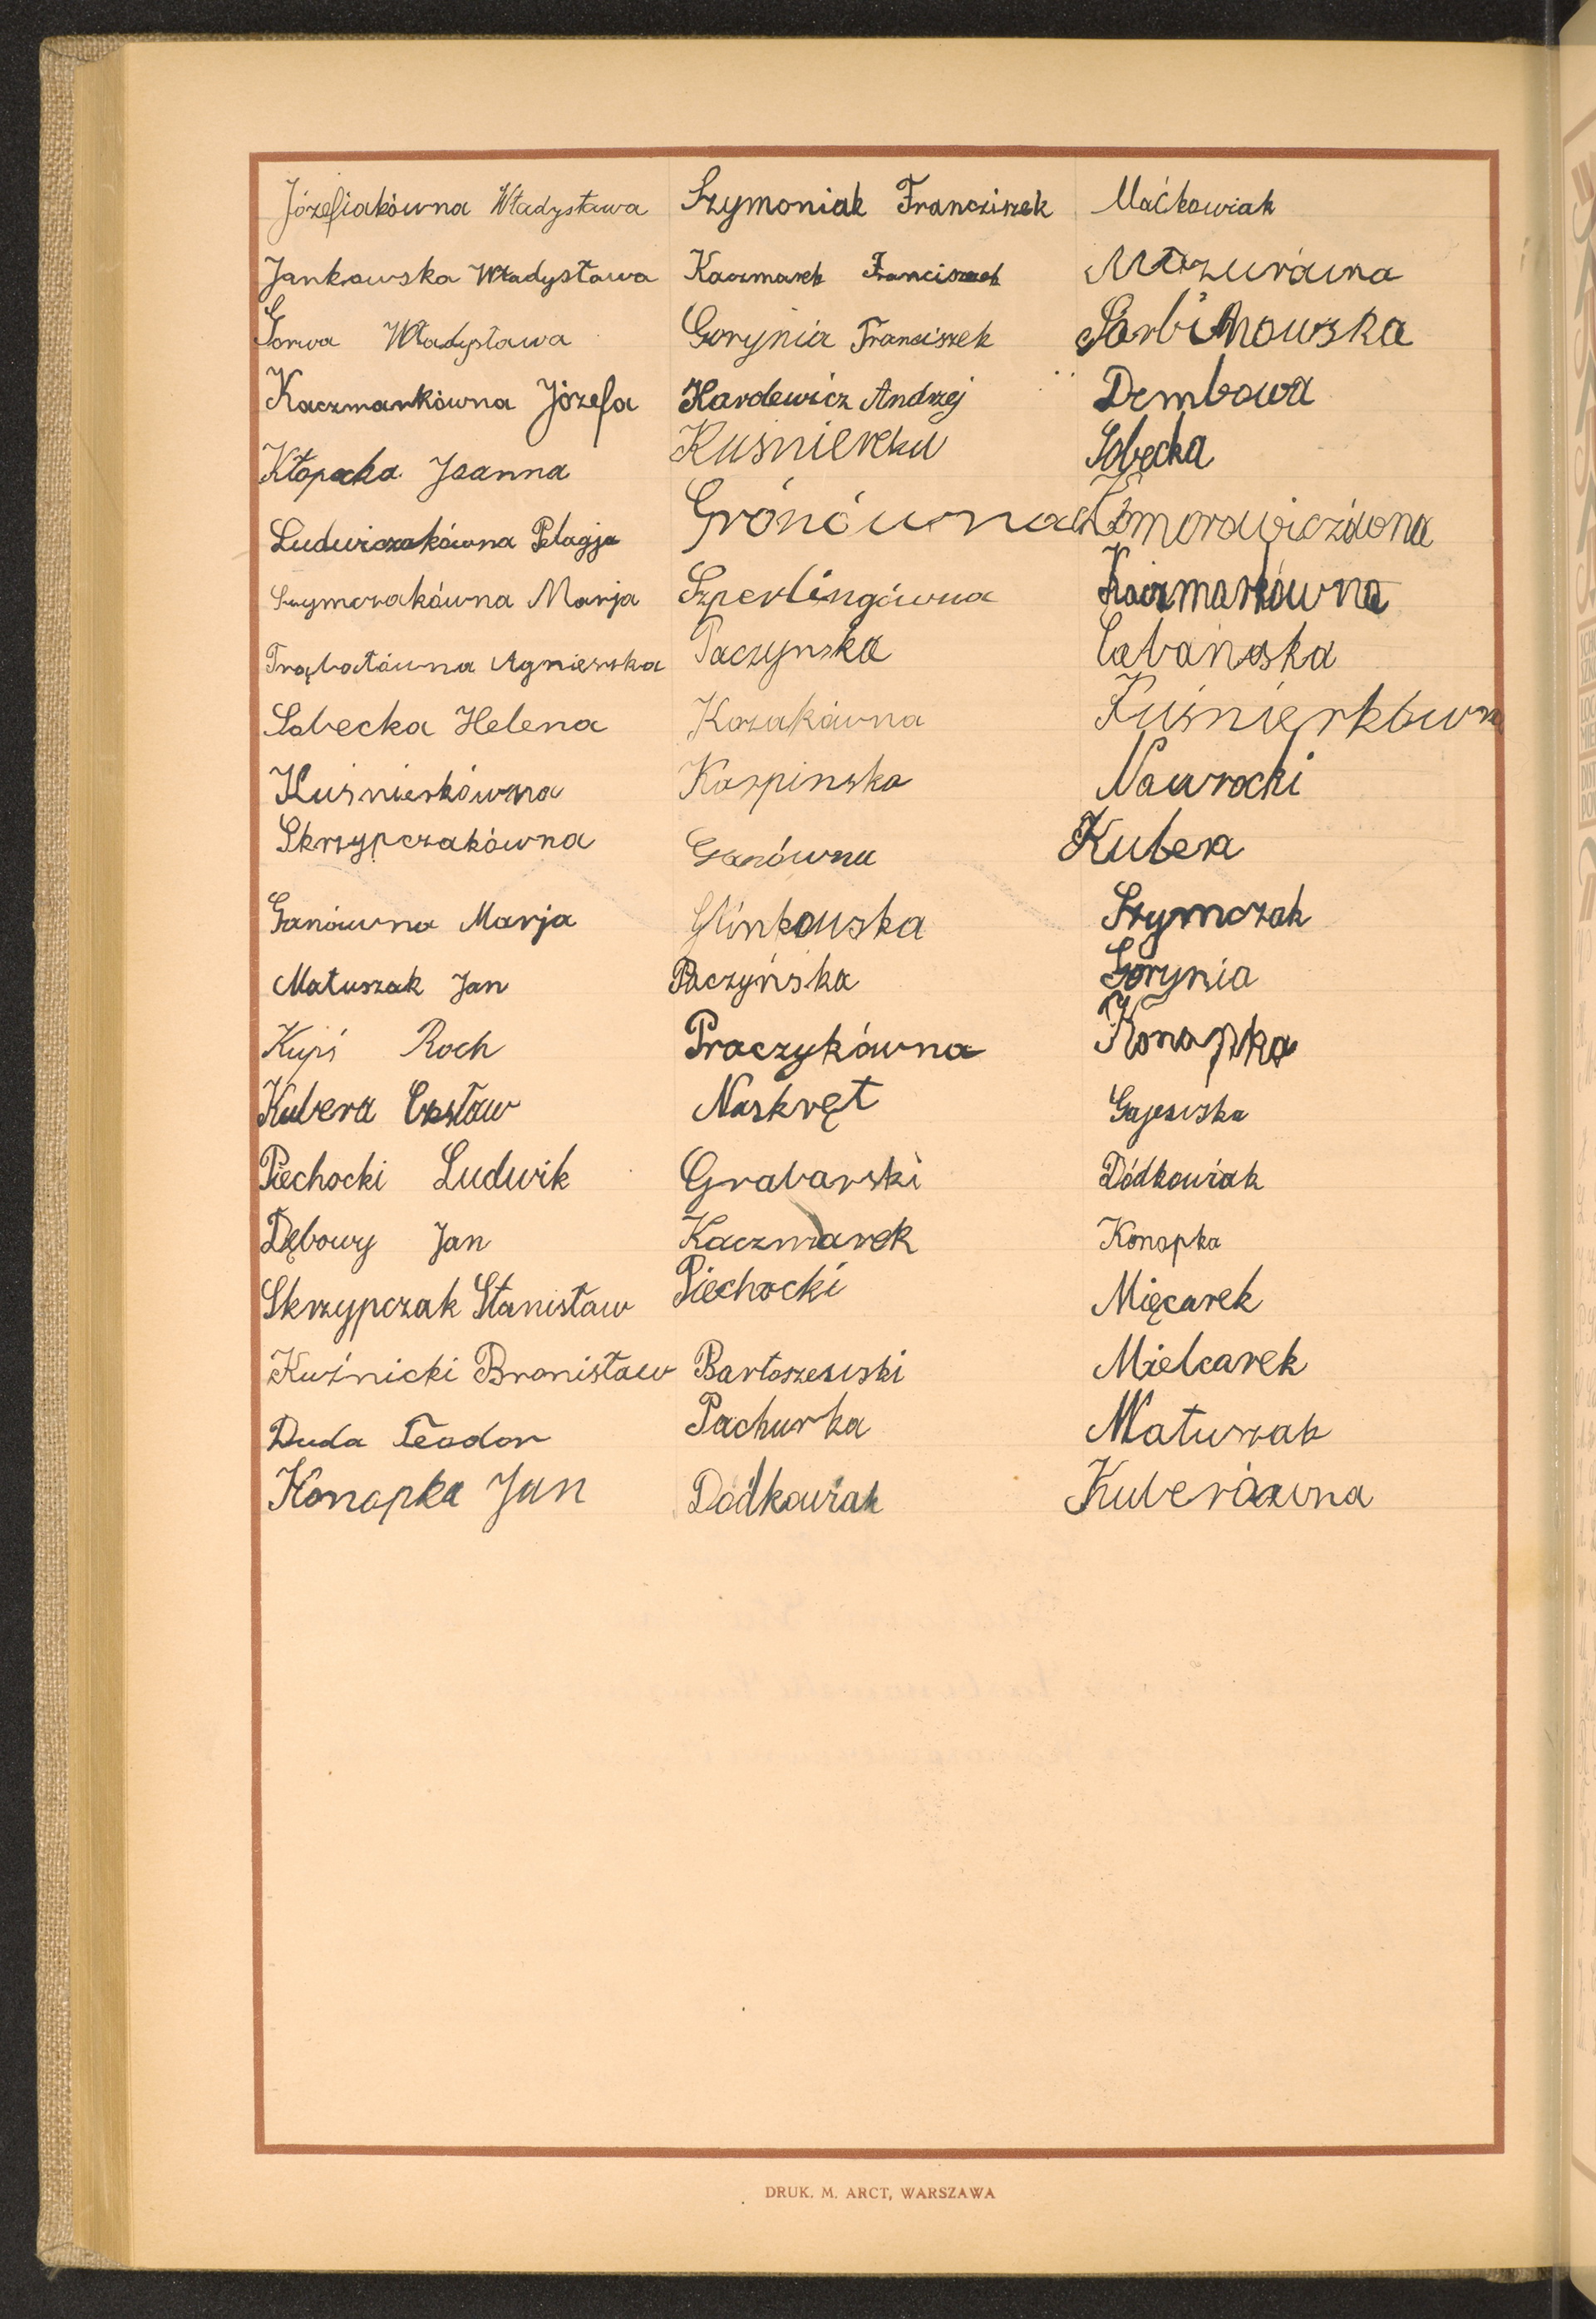 Józefiakówna Władysława
Jankowska Władysława
Gorwa Władysława
Kaczmarkówna Józefa
Kłopocka Joanna
Ludwiczakówna Pelagja
Szymczakówna Marja
Trąbatówna Agnieszka
Sobecka Helena
Kuśnierkówna
Skrzypczakówna
Ganówna Marja
Matuszak Jan
Kupś Roch
Kubera Czesław
Piechocki Ludwik
Dębowy Jan
Skrzypczak Stanisław
Kuźnicki Bronisław
Duda Teodor
Konopka Jan
Szymoniak Francziszek
Kaczmarek Franciszek
Gorynia Franciszek
Hardewicz Andrzej
Gronówna
Szperlingówna
Paczynska
Kozakówna
Karpinska
Ganówna
Glinkowska
Paczyńska
Praczykówna
Naskręt
Grabarski
Kaczmarek
Piechocki
Bartoszewski
Pachurka
Dódkowiak
Maćkowiak
Mazurówna
Sarbinowska
Dembowa
Sobecka
Komorowiczówna
Kaczmarkówna
Cabańska
Kuśnierkówna
Nawrocki
Kubera
Szymczak
Gorynia
Konopka
Gajewska
Dódkowiak
Konopka
Mięcarek
Mielcarek
Matuszak
Kuberówna
DRUK. M. ARCT, WARSZAWA